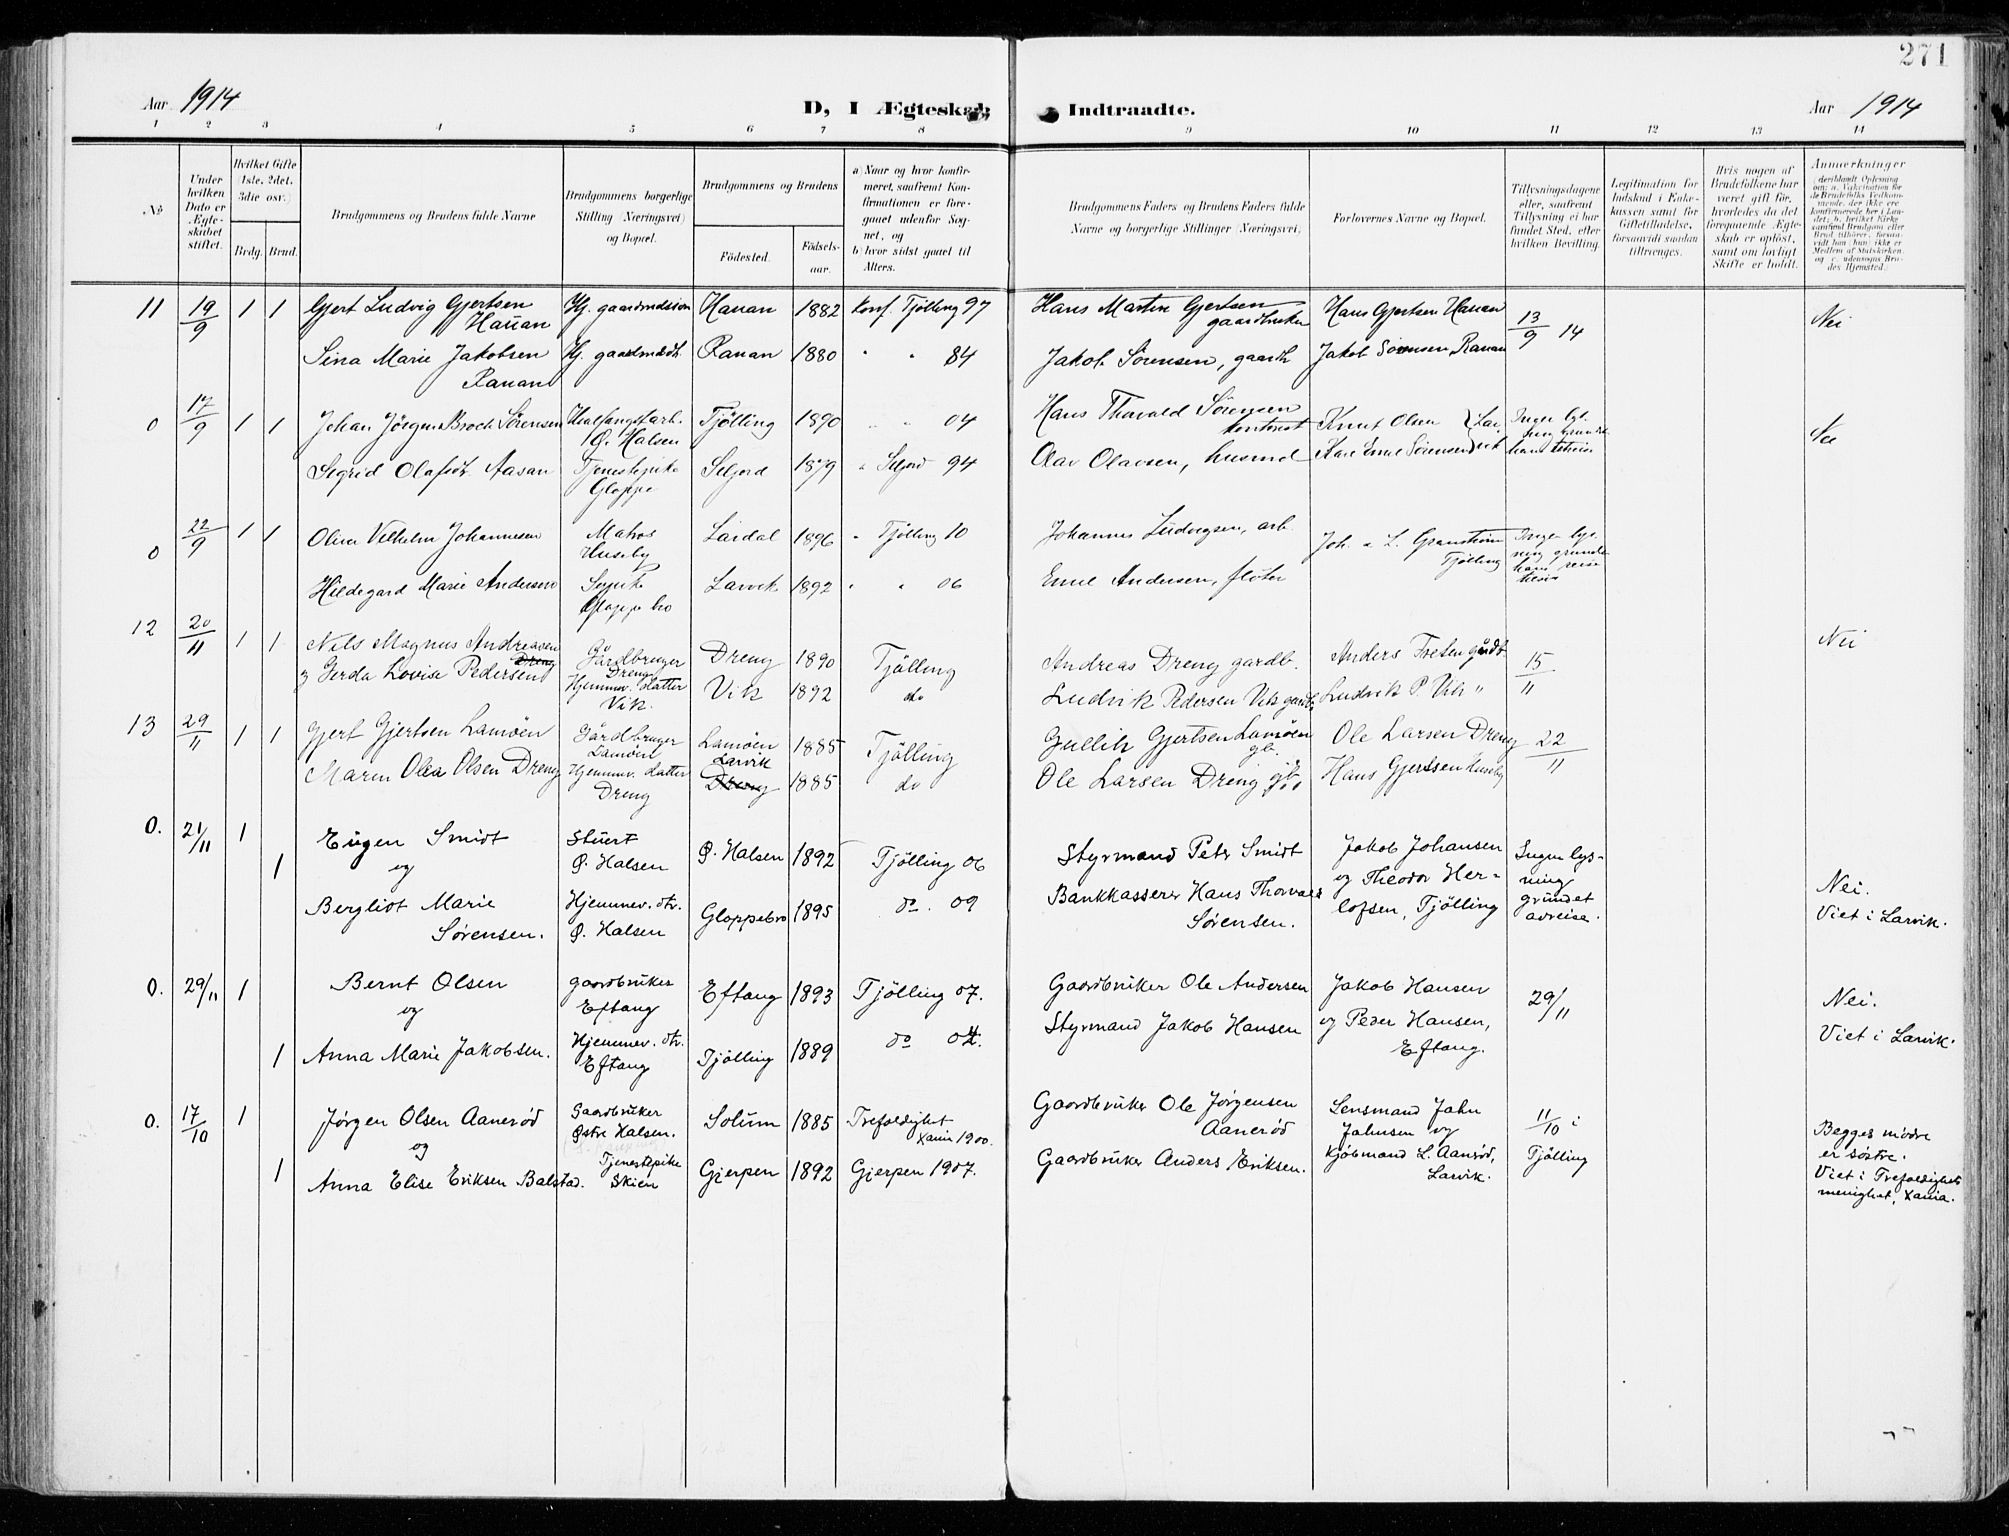 271
Aar 1914
D, I Ægteskab Indtraadte.
Aar 1914
1 2 3 4 5 6 7 8 9 10 11 12 13 14
No
Under hvilken Dato er Ægteskabet stiftet.
Hvilket Gifte (1ste, 2det, 3die osv.)
Brdg. Brud.
Brudgommens og Brudens fulde Navne
Brudgommens borgerlige Stilling (Næringsvei) og Bopæl.
Brudgommens og Brudens
Fødested.
Fødsels-aar.
a) Naar og hvor konfirmeret, saafremt Konfirmationen er foregaaet udenfor Sognet, og
b) hvor sidst gaaet til Alters.
Brudgommens Faders og Brudens Faders fulde Navne og borgerlige Stillinger (Næringsvei).
Forlovernes Navne og Bopæl.
Tillysningsdagene eller, saafremt Tillysning ei har fundet Sted, efter hvilken Bevilling.
Legitimation for Indskud i Enkekassen samt for Giftetilladelse, forsaavidt saadan tiltrænges.
Hvis nogen af Brudefolkene har været gift før, hvorledes da det foregaaende Ægteskab er opløst, samt om lovligt Skifte er holdt.
Anmerkninger
11 19/9 1 1 Gjert Ludvig Gjertsen Hj. gaardmdssøn Hauan 1882 Konf. Tjølling 97 Hans Martin Gjertsen Hans Gjertsen Hauan 13/9 14 Nei
Hauan gaardbruker
Sina Marie Jakobsen Hj. gaardmdsdt. Ranan 1880 " " 84 Jakob Sørensen, gaardb Jakob Sørensen Ranan
Ranan
0 17/9 1 1 Johan Jörgen Broch Sörensen Hvalfangstarb. Tjölling 1890 " " 04 Hans Thorvald Sörensen Knut Olsen Lar- Ingen lys- Nei
Ø. Halsen kontorist ning grundet
Sigrid Olafsdt. Aasan Tjenestepike Seljord 1879 " Seljord 94 Olav Olavsen, husmd Karl Emil Sørensen vik
Gloppe
0 22/9 1 1 Olin Vilhelm Johannesen Matros Lardal 1896 " Tjølling 10 Johannes Ludvigsen, arb. Joh. L. Granstrøm Ingen lys-
Huseby Tjølling ning grundet
Hildegard Marie Andersen Sypike Larvik 1892 " " 06 Emil Andersen, fløter hans reise
Gloppe bro
12 20/11 1 1 Nils Magnus Andreasen Gårdbruger Dreng 1890 Tjölling Andreas Dreng gardb. Anders Treten gårdb 15/11 Nei
Dreng Dreng
og Gerda Lovise Pedersen Hjemmev. datter Vik 1892 do Ludvik Pedersen Vik gardb. Ludvik P. Vik "
Vik.
13 29/11 1 1 Gjert Gjertsen Lamöen Gårdbruger Lamöen 1885 Tjölling Gullik Gjertsen Lamöen Ole Larsen Dreng 22/11
Lamöen Larvik gb.
Maren Olea Olsen Dreng Hjemmev. datter Dreng 1885 do Ole Larsen Dreng gb. Hans Gjertsen Huseby
Dreng
0. 21/11 1 Eugen Smidt Stuert Ø. Halsen 1892 Tjölling 06 Styrmand Peter Smidt Jakob Johansen Ingen lys-
og Ø. Halsen og Theodor Her- ning
1 Bergliot Marie Hjemmev. dtr. Gloppebro 1895 do. 09 Bankkasserer Hans Thorvald lofsen, Tjölling grundet Nei.
Sørensen. Ø. Halsen Sørensen. avreise. Viet i Larvik.
0. 29/11 1 Bernt Olsen gaardbruker Eftang 1893 Tjölling 07. Gaardbruker Ole Andersen Jakob Hansen 29/11 Nei.
og Eftang og Peder Hansen,
1 Anna Marie Jakobsen. Hjemmev. dtr. Tjölling 1889 do 04. Styrmand Jakob Hansen Eftang. Viet i Larvik.
Eftang
0. 17/10 1 Jørgen Olsen Aanerød Gaardbruker Solum 1885 Trefoldighet Gaardbruker Ole Jørgensen Lensmand Jahn 11/10 i Begges mødre
og Østre Halsen. Xania 1900. Aanerød Jahnsen og er søstre.
1 Anna Elise Eriksen Balstad. Tjenestepike Gjerpen 1892 Gjerpen 1907. Gaardbruker Anders Eriksen. Kjøbmand L. Aanrød, Tjølling Viet i Trefoldighets
Skien Larvik. menighet, Xania.